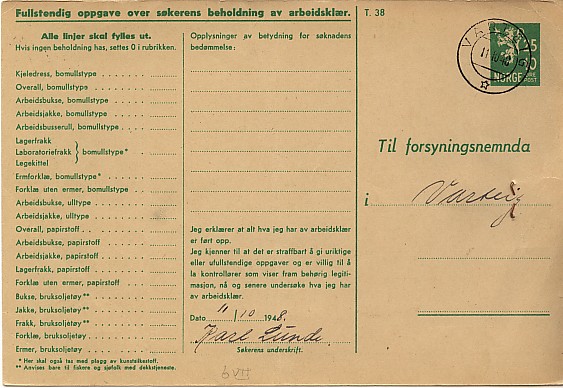 Fullstendig oppgave over søkerens beholdning av arbeidsklær.
Alle linjer skal fylles ut.
Hvis ingen beholdning has, settes 0 i rubrikken.
Kjeledress, bomullstype
Overall, bomullstype
Arbeidsbukse, bomullstype
Arbeidsjakke, bomullstype
Arbeidsbusserull, bomullstype
Lagerfrakk
Laboratoriefrakk } bomullstype*
Legekittel
Ermforklæ, bomullstype*
Forklæ uten ermer, bomullstype
Arbeidsbukse, ulltype
Arbeidsjakke, ulltype
Overall, papirstoff
Arbeidsbukse, papirstoff
Arbeidsjakke, papirstoff
Lagerfrakk, papirstoff
Forklæ uten ermer, papirstoff
Bukse, bruksoljetøy**
Jakke, bruksoljetøy**
Frakk, bruksoljetøy**
Forklæ, bruksoljetøy
Ermer, bruksoljetøy
* Her skal også tas med plagg av kunstsilkestoff.
** Anvises bare til fiskere og sjøfolk med dekkstjeneste.
Opplysninger av betydning for søknadens
bedømmelse:
Jeg erklærer at alt hva jeg har av arbeidsklær
er ført opp.
Jeg kjenner til at det er straffbart å gi uriktige
eller ufullstendige oppgaver og er villig til å
la kontrollører som viser fram behørig legiti-
masjon, nå og senere undersøke hva jeg har
av arbeidsklær.
Dato 11/10 1948.
Karl Lunde
Søkerens underskrift.
b VII
T. 38
VARTEIG
NORGE
ØRE
POST
Til forsyningsnemnda
i Varteig